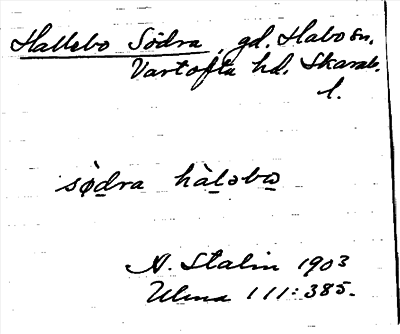 Hallebo Södra, gd. Habo sn.
Vartofta hd. Skarab.
l.
sø̀dra hàləbo
A. Stalin 1903
Ulma 111:385.